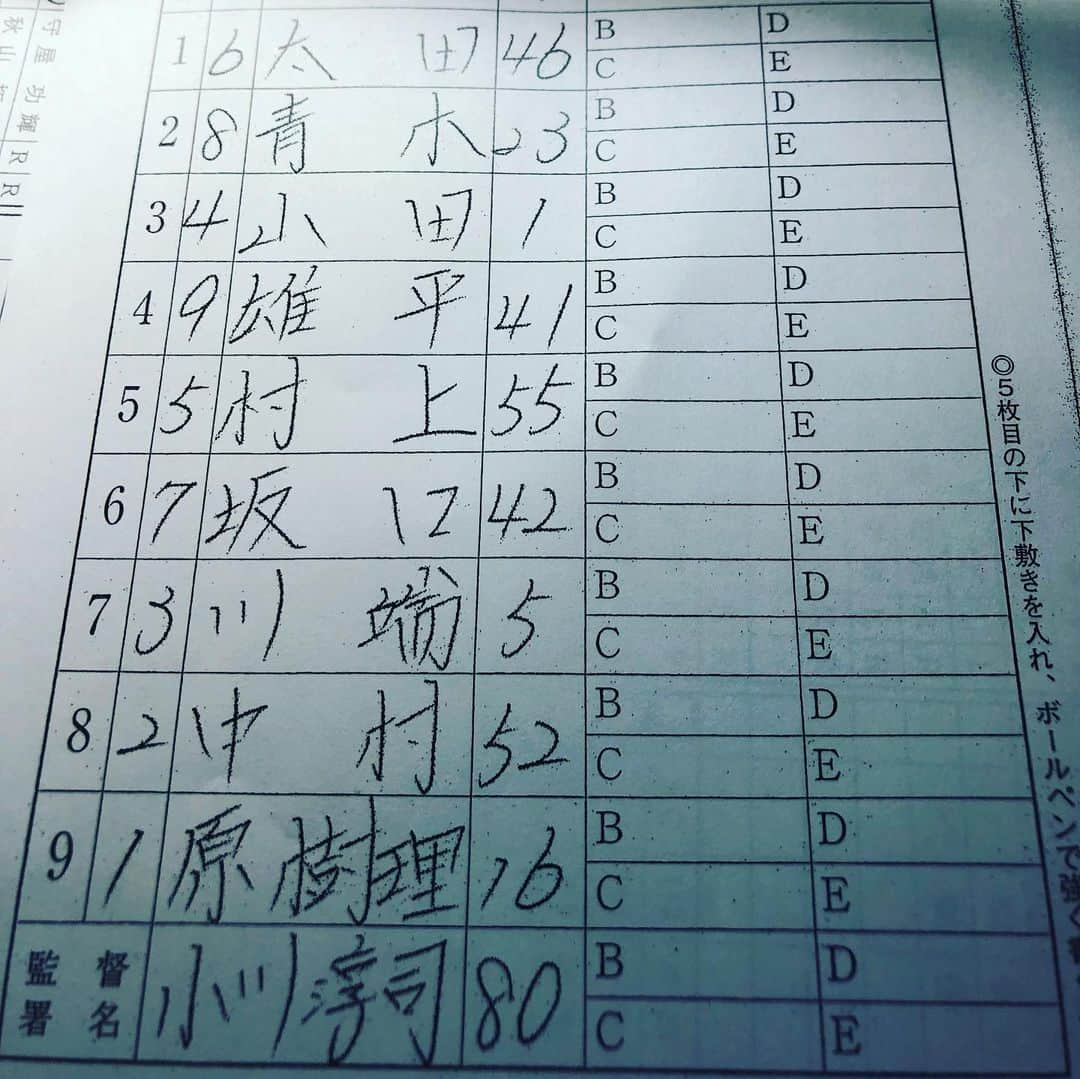 1 6 太田 46 B D
C E
2 8 青木 23 B D
C E
3 4 山田 1 B D
C E
4 9 雄平 41 B D
C E
5 5 村上 55 B D
C E
6 7 坂口 42 B D
C E
7 3 川端 5 B D
C E
8 2 中村 52 B D
C E
9 1 原樹理 16 B D
C E
監督署名 小川淳司 80 B D
C E
◎5枚目の下に下敷きを入れ、ボールペンで強く
守屋功輝 R R
秋山